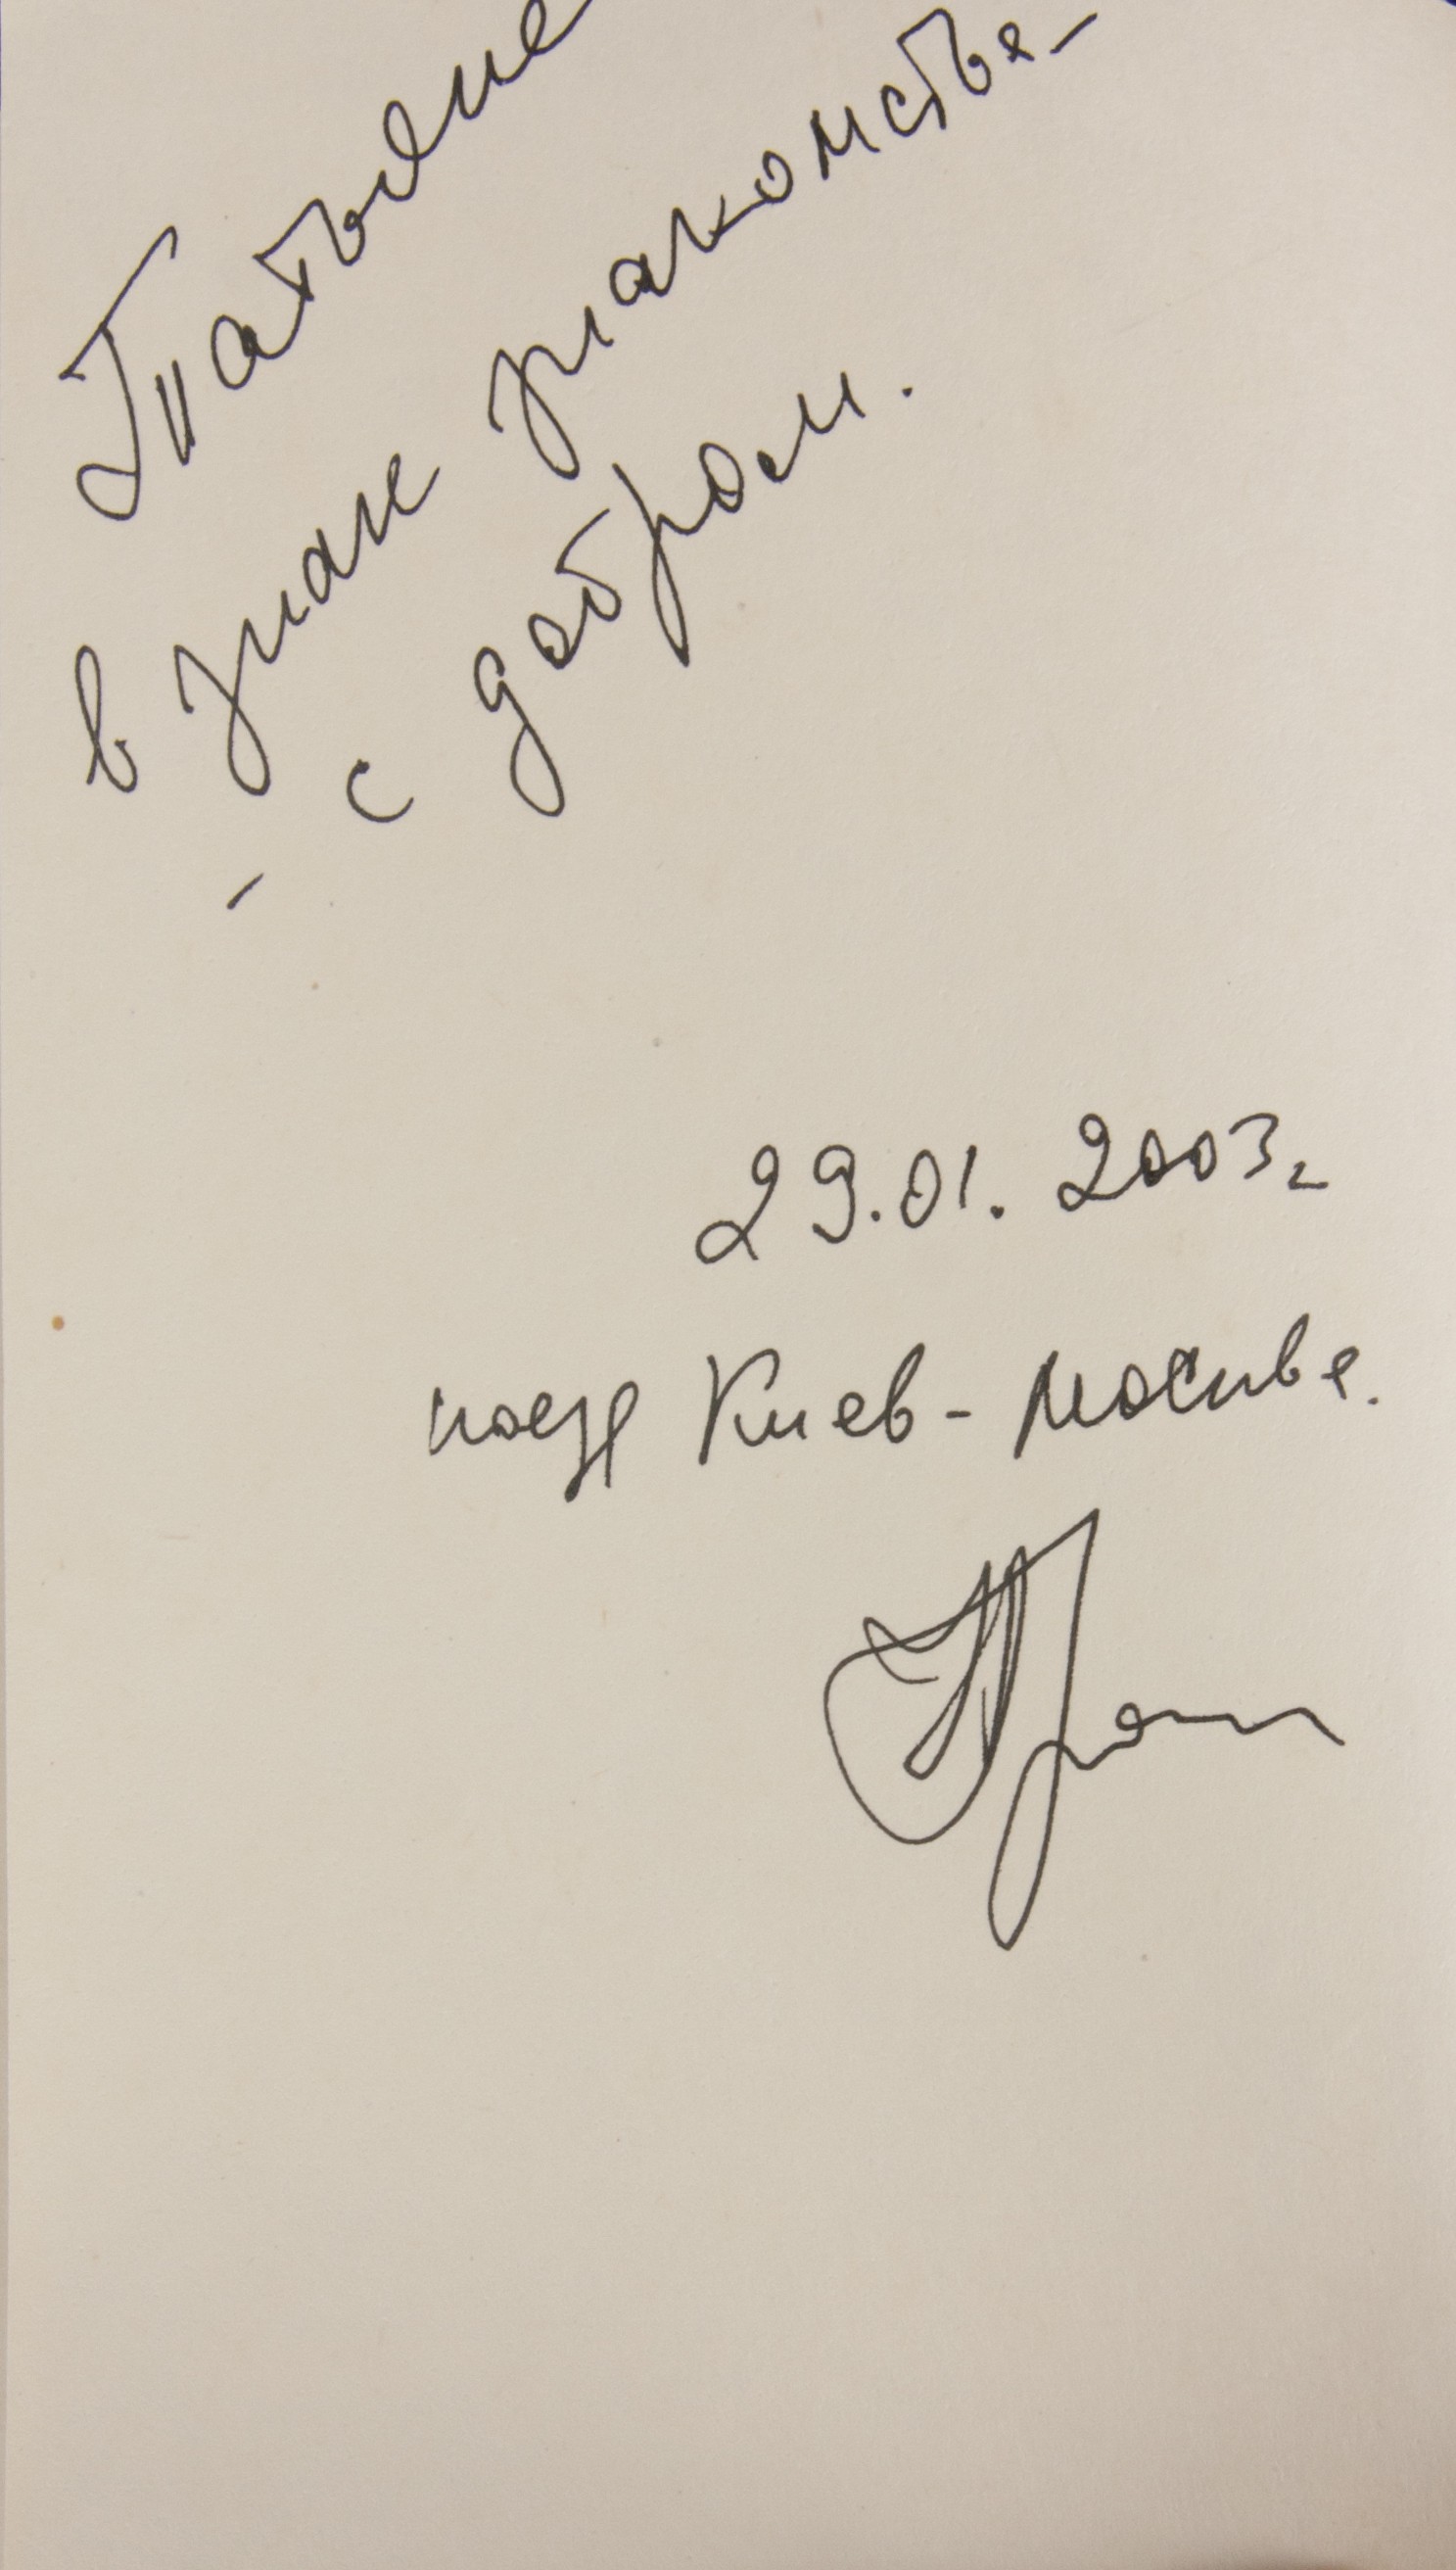 Татьяне
в знак знакомства -
- с добром.
29.01.2003г
поезд Киев - Москва.